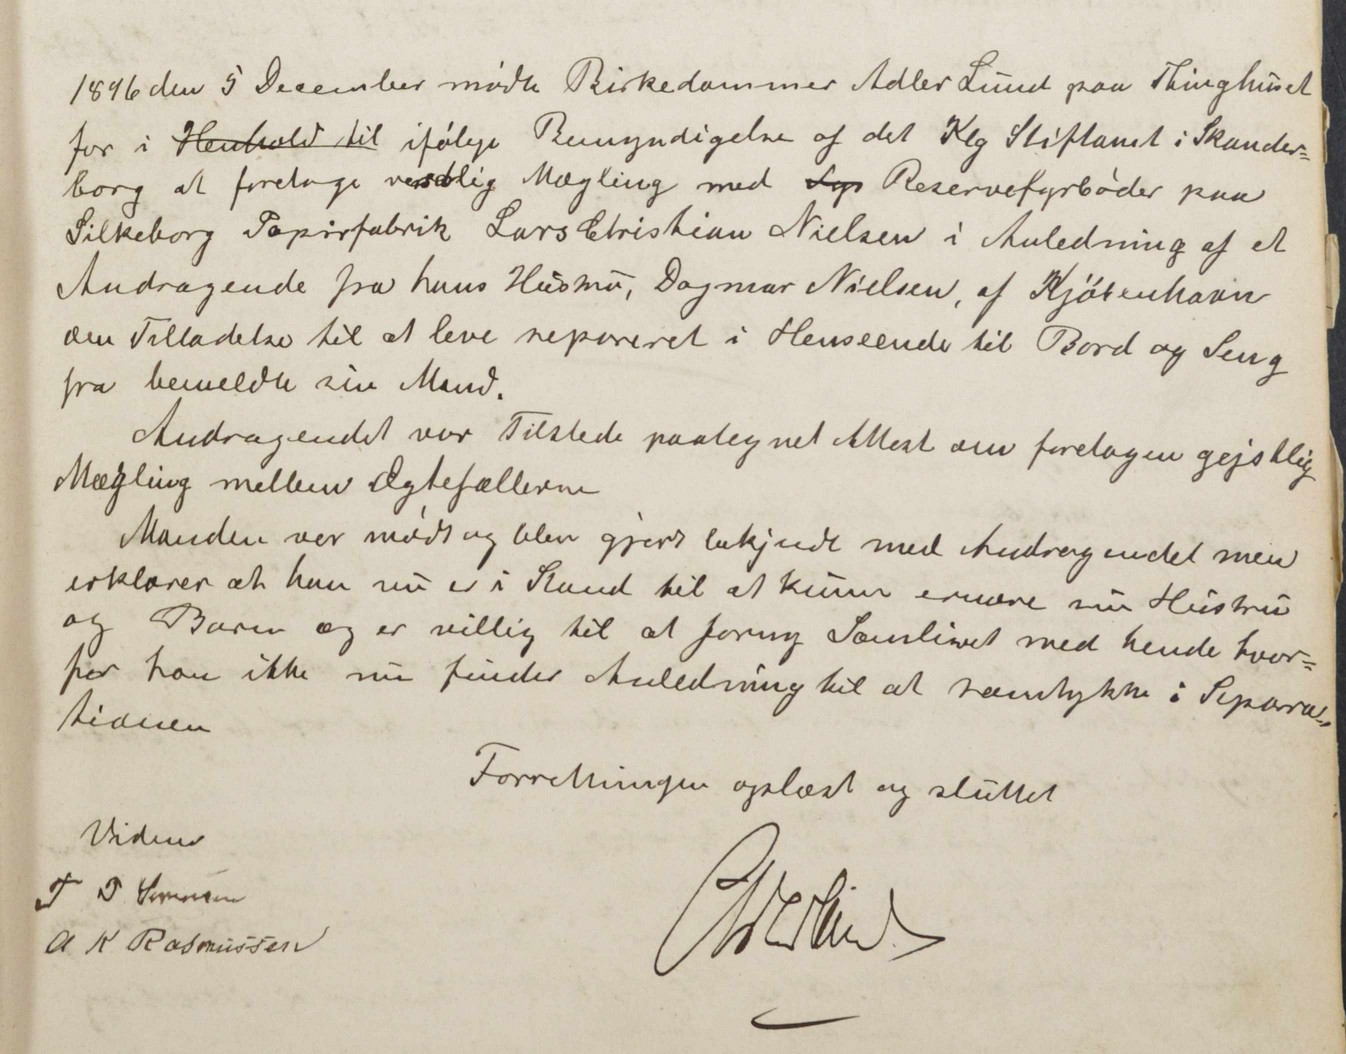 1896 den 5 December mødte Birkedommer Adler Lund paa Thinghuset
for i Henhold til ifølge Bemyndigelse af det Klg Stiftamt i Skander=
borg at foretage verdslig Mægling med Reservefyrbøder paa
Silkeborg Papirfabrik Lars Christian Nielsen i Anledning af et
Andragende fra hans Hustru, Dagmar Nielsen, af Kjøbenhavn
om Tilladelse til at leve separeret i Henseende til Bord og Seng
fra bemeldte sin Mand.
Andragendet var Tilstede paategnet Attest om foretagen gejstlig
Mægling mellem Ægtefællerne
Manden var mødt og blev gjort bekjendt med Andragendet men
erklærer at han nu er i Stand til at kunne ernære sin Hustru
og Barn og er villig til at forny Samlivet med hende hvor=
for han ikke nu finder Anledning til at samtykke i Separa=
tionen
Forretningen oplæst og sluttet
Vidner
A K Rasmussen
Adler Lund